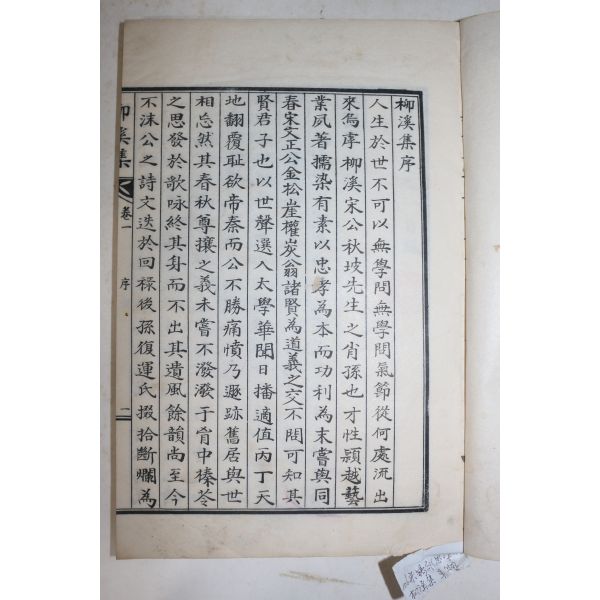 柳溪集序
人生於世不可以無學問無學問氣節從何處流出
來烏虖柳溪宋公秋坡先生之肖孫也才性穎越藝
業夙著擩染有素以忠孝為本而功利為末嘗與同
春宋文正公金松崖權炭翁諸賢為道義之交不問可知其
賢君子也以世聲選入太學華聞日播適值丙丁天
地翻覆恥欲帝秦而公不勝痛憤乃遯跡舊居與世
相忘然其春秋尊攘之義未嘗不潑潑于胷中榛苓
之思發於歌咏終其身而不出其遺風餘韻尚至今
不沬公之詩文迭於回祿後孫復運氏掇拾斷爛為
柳溪集
卷一
序
一
柳溪集